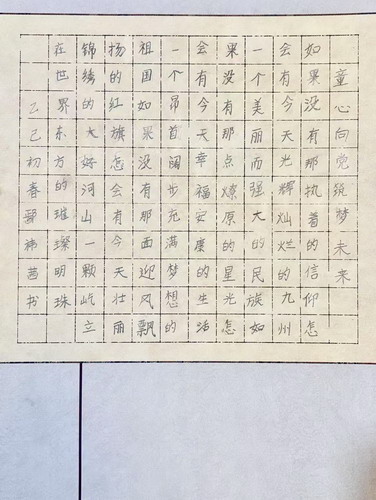 童心向党筑梦未来
如果没有那执着的信仰怎
会有今天光辉灿烂的九州
一个美丽而强大的民族如
果没有那点燎原的星光怎
会有今天幸福安康的生活
一个昂首阔步充满梦想的
祖国如果没有那面迎风飘
扬的红旗怎会有今天壮丽
锦绣的大好河山一颗屹立
在世界东方的璀璨明珠
乙巳初春郭祎茜书